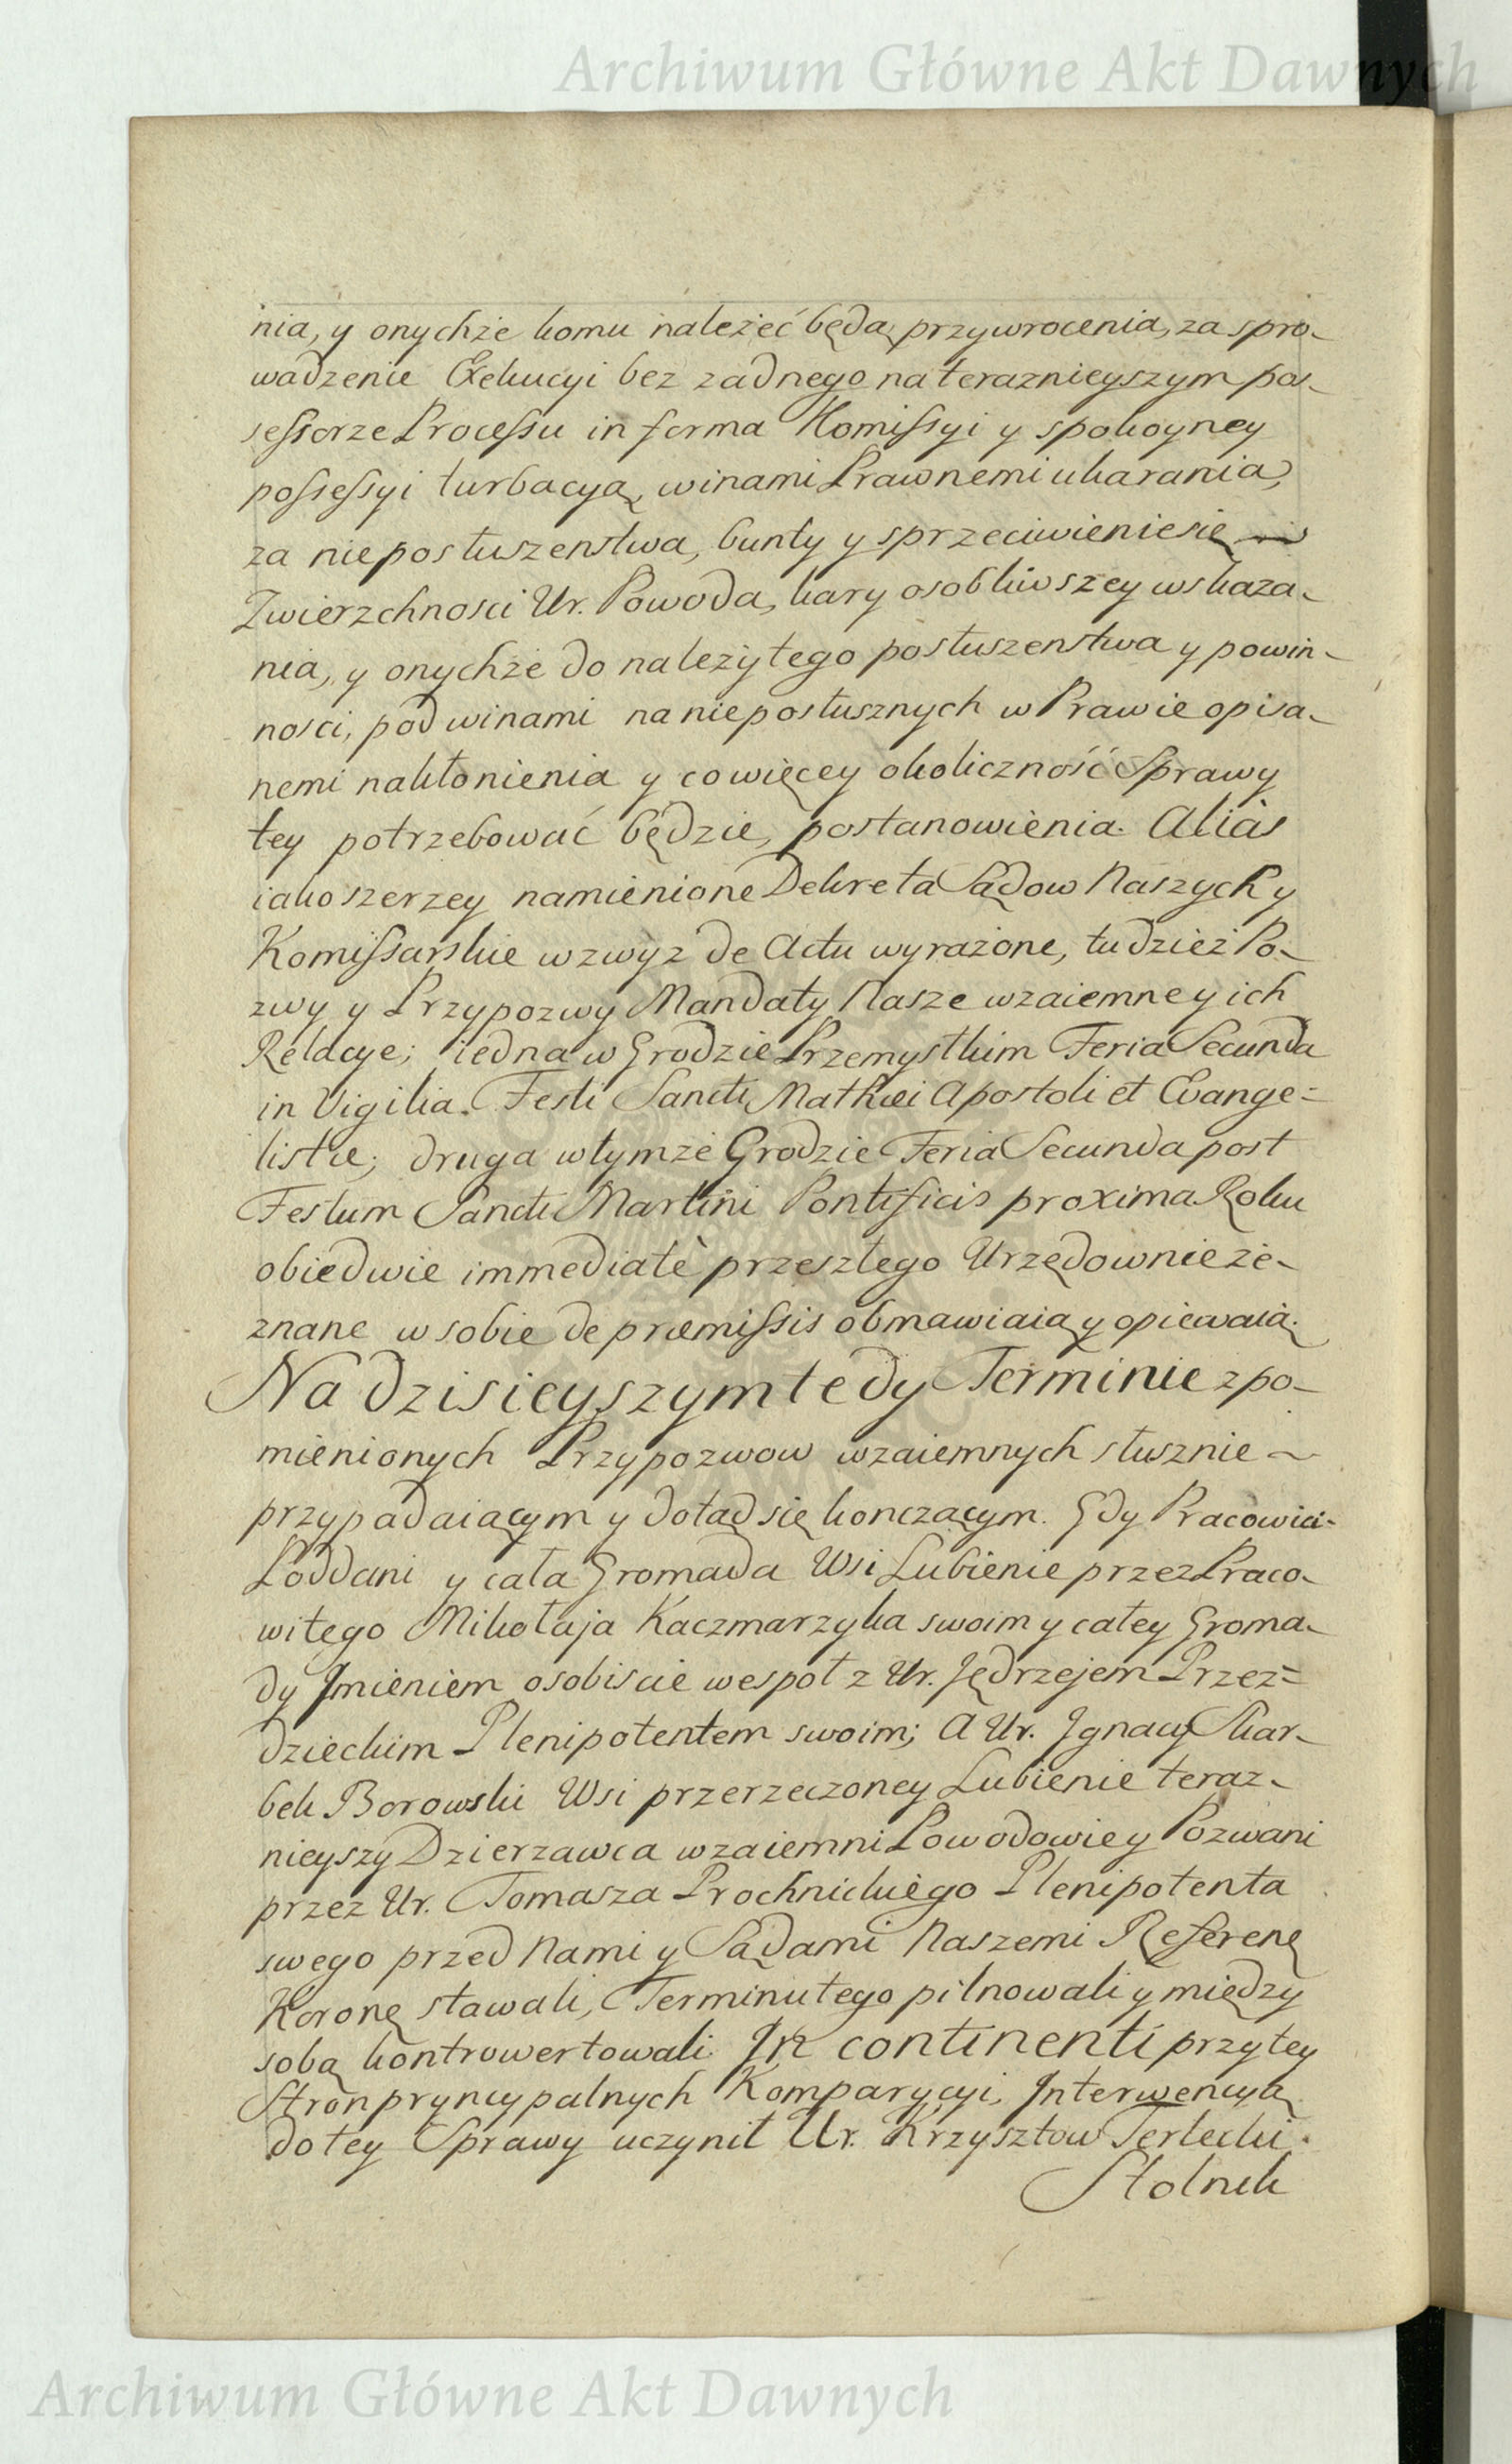 Archiwum Główne Akt Dawnych
nia, y onychże komu należeć będą przywrocenia, za spro-
wadzenie Exekucyi bez zadnego na teraznieyszym pos-
sessorze Processu in forma Komissyi y spokoyney
possessyi turbacyą, winami Prawnemi ukarania,
za nieposłuszenstwa, bunty y sprzeciwienie się
Zwierzchnosci Ur. Powoda, kary osobliwszey wskaza-
nia, y onychże do należytego posłuszenstwa y powin-
nosci, pod winami na nieposłusznych w Prawie opisa-
nemi nakłonienia y co więcey okoliczność Sprawy
tey potrzebować będzie, postanowienia. Aliàs
iako szerzey namienione Dekreta Sądow Naszych y
Komissarskie wzwyż de Actu wyrażone, tudzież Po-
zwy y Przypozwy Mandaty Nasze wzaiemne y ich
Relacye; iedna w Grodzie Przemyslkim Feria Secunda
in Vigilia Festi Sancti Mathæi Apostoli et Evange=
listæ; druga w tymże Grodzie Feria Secunda post
Festum Sancti Martini Pontificis proxima Roku
obiedwie immediatè przeszłego Urzędownie ze-
znane w sobie de præmissis obmawiaią y opiewaią.
Na dzisieyszym tedy Terminie z po-
mienionych Przypozwow wzaiemnych słusznie
przypadaiącym y dotąd się konczącym. Gdy Pracowici
Poddani y cała Gromada Wsi Lubienie przez Praco-
witego Mikołaja Kaczmarzyka swoim y całey Groma-
dy Imieniem osobiscie wespoł z Ur. Jędrzejem Przez=
dzieckim Plenipotentem swoim; A Ur. Ignacy Skar-
bek Borowski Wsi przerzeczoney Lubienie teraz-
nieyszy Dzierzawca wzaiemni Powodowie y Pozwani
przez Ur. Tomasza Prochnickiego Plenipotenta
swego przed Nami y Sądami Naszemi Referenę
Koronę stawali, Terminu tego pilnowali y między
sobą kontrowertowali. In continenti przy tey
Stron pryncypalnych Komparycyi, Interwencyą
do tey Sprawy uczynił Ur. Krzysztow Terlecki
Stolnik
Archiwum Główne Akt Dawnych